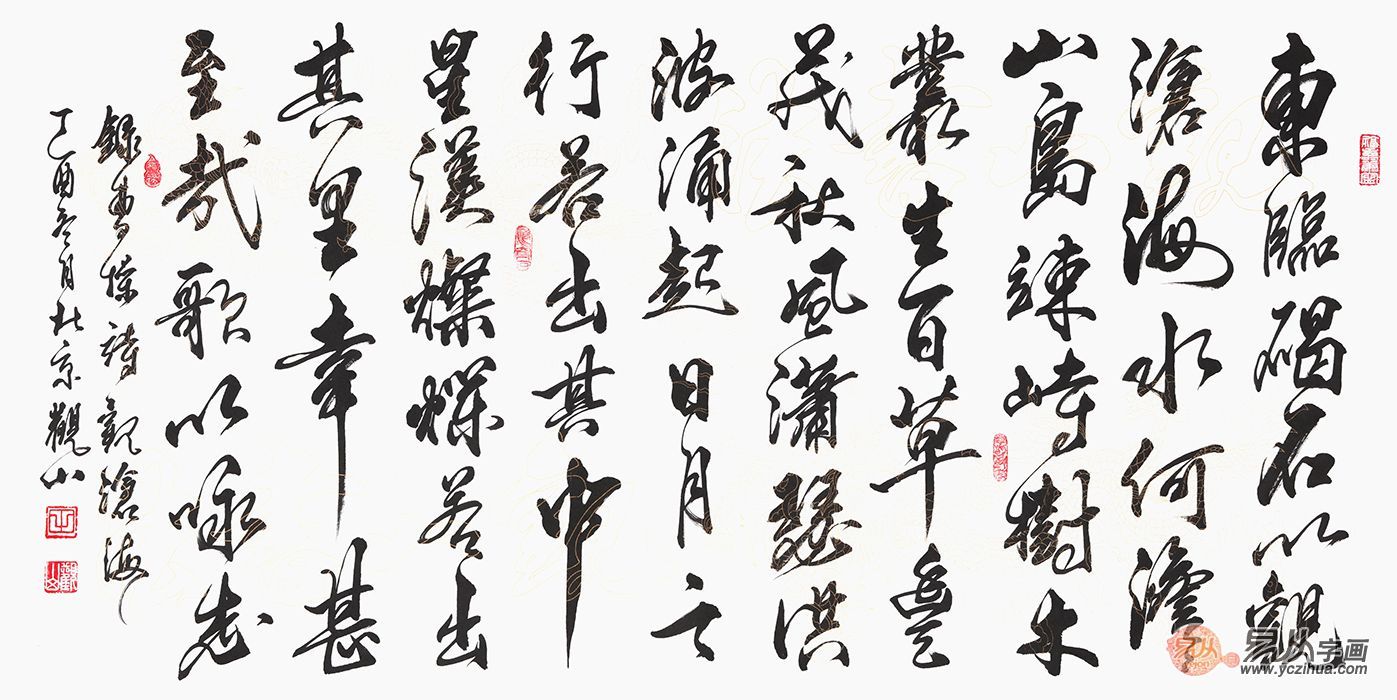 東臨碣石以觀
滄海水何澹
山島竦峙樹木
叢生百草豐
茂秋風瀟瑟洪
波涌起日月之
行若出其中
星漢燦爛若出
其里幸甚
至哉歌以咏志
錄曹操詩觀滄海
丁酉冬月北京觀山
易从字画
www.yczihua.com